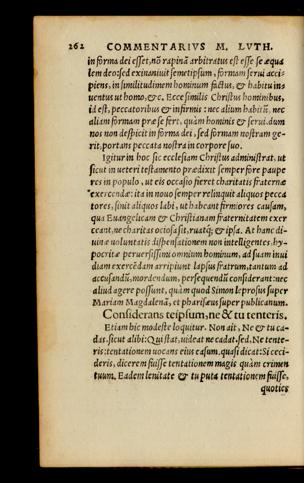 262 COMMENTARIVS M. LVTH.
in forma dei esset, nō rapinā arbitratus est esse se æqua
lem deo, sed exinaniuit semetipsum, formam serui acci-
piens, in similitudinem hominum factus, & habitu in-
uentus ut homo, &c. Ecce similis Christus hominibus,
id est, peccatoribus & infirmis: nec alium habitū, nec
aliam formam præ se fert, quàm hominis & serui, dum
nos non despicit in forma dei, sed formam nostram ge-
rit, portans peccata nostra in corpore suo.
Igitur in hoc sic ecclesiam Christus administrat, ut
sicut in ueteri testamento prædixit semper fore paupe
res in populo, ut eis occasio fieret charitatis fraternæ
exercendæ: ita in nouo semper relinquit aliquos pecca
tores, sinit aliquos labi, ut habeant firmiores causam,
qua Euangelicam & Christianam fraternitatem exer
ceant, ne charitas ociosa sit, ruatq; & ipsa. At hanc di-
uinæ uoluntatis dispensationem non intelligentes, hy-
pocritæ peruersissimi omnium hominum, ad suam inui
diam exercēdam arripiunt lapsus fratrum, tantum ad
accusandū, mordendum, persequendū considerant: nec
aliud agere possunt, quàm quod Simon leprosus super
Mariam Magdalenā, et pharisæus super publicanum.
Considerans teipsum, ne & tu tenteris.
Etiam hic modeste loquitur. Non ait, Ne & tu ca-
das. sicut alibi: Qui stat, uideat ne cadat. sed, Ne tente-
ris: tentationem uocans eius casum, quasi dicat: Si ceci-
deris, dicerem fuisse tentationem magis quàm crimen
tuum. Eadem lenitate & tu puta tentationem fuisse,
quoties